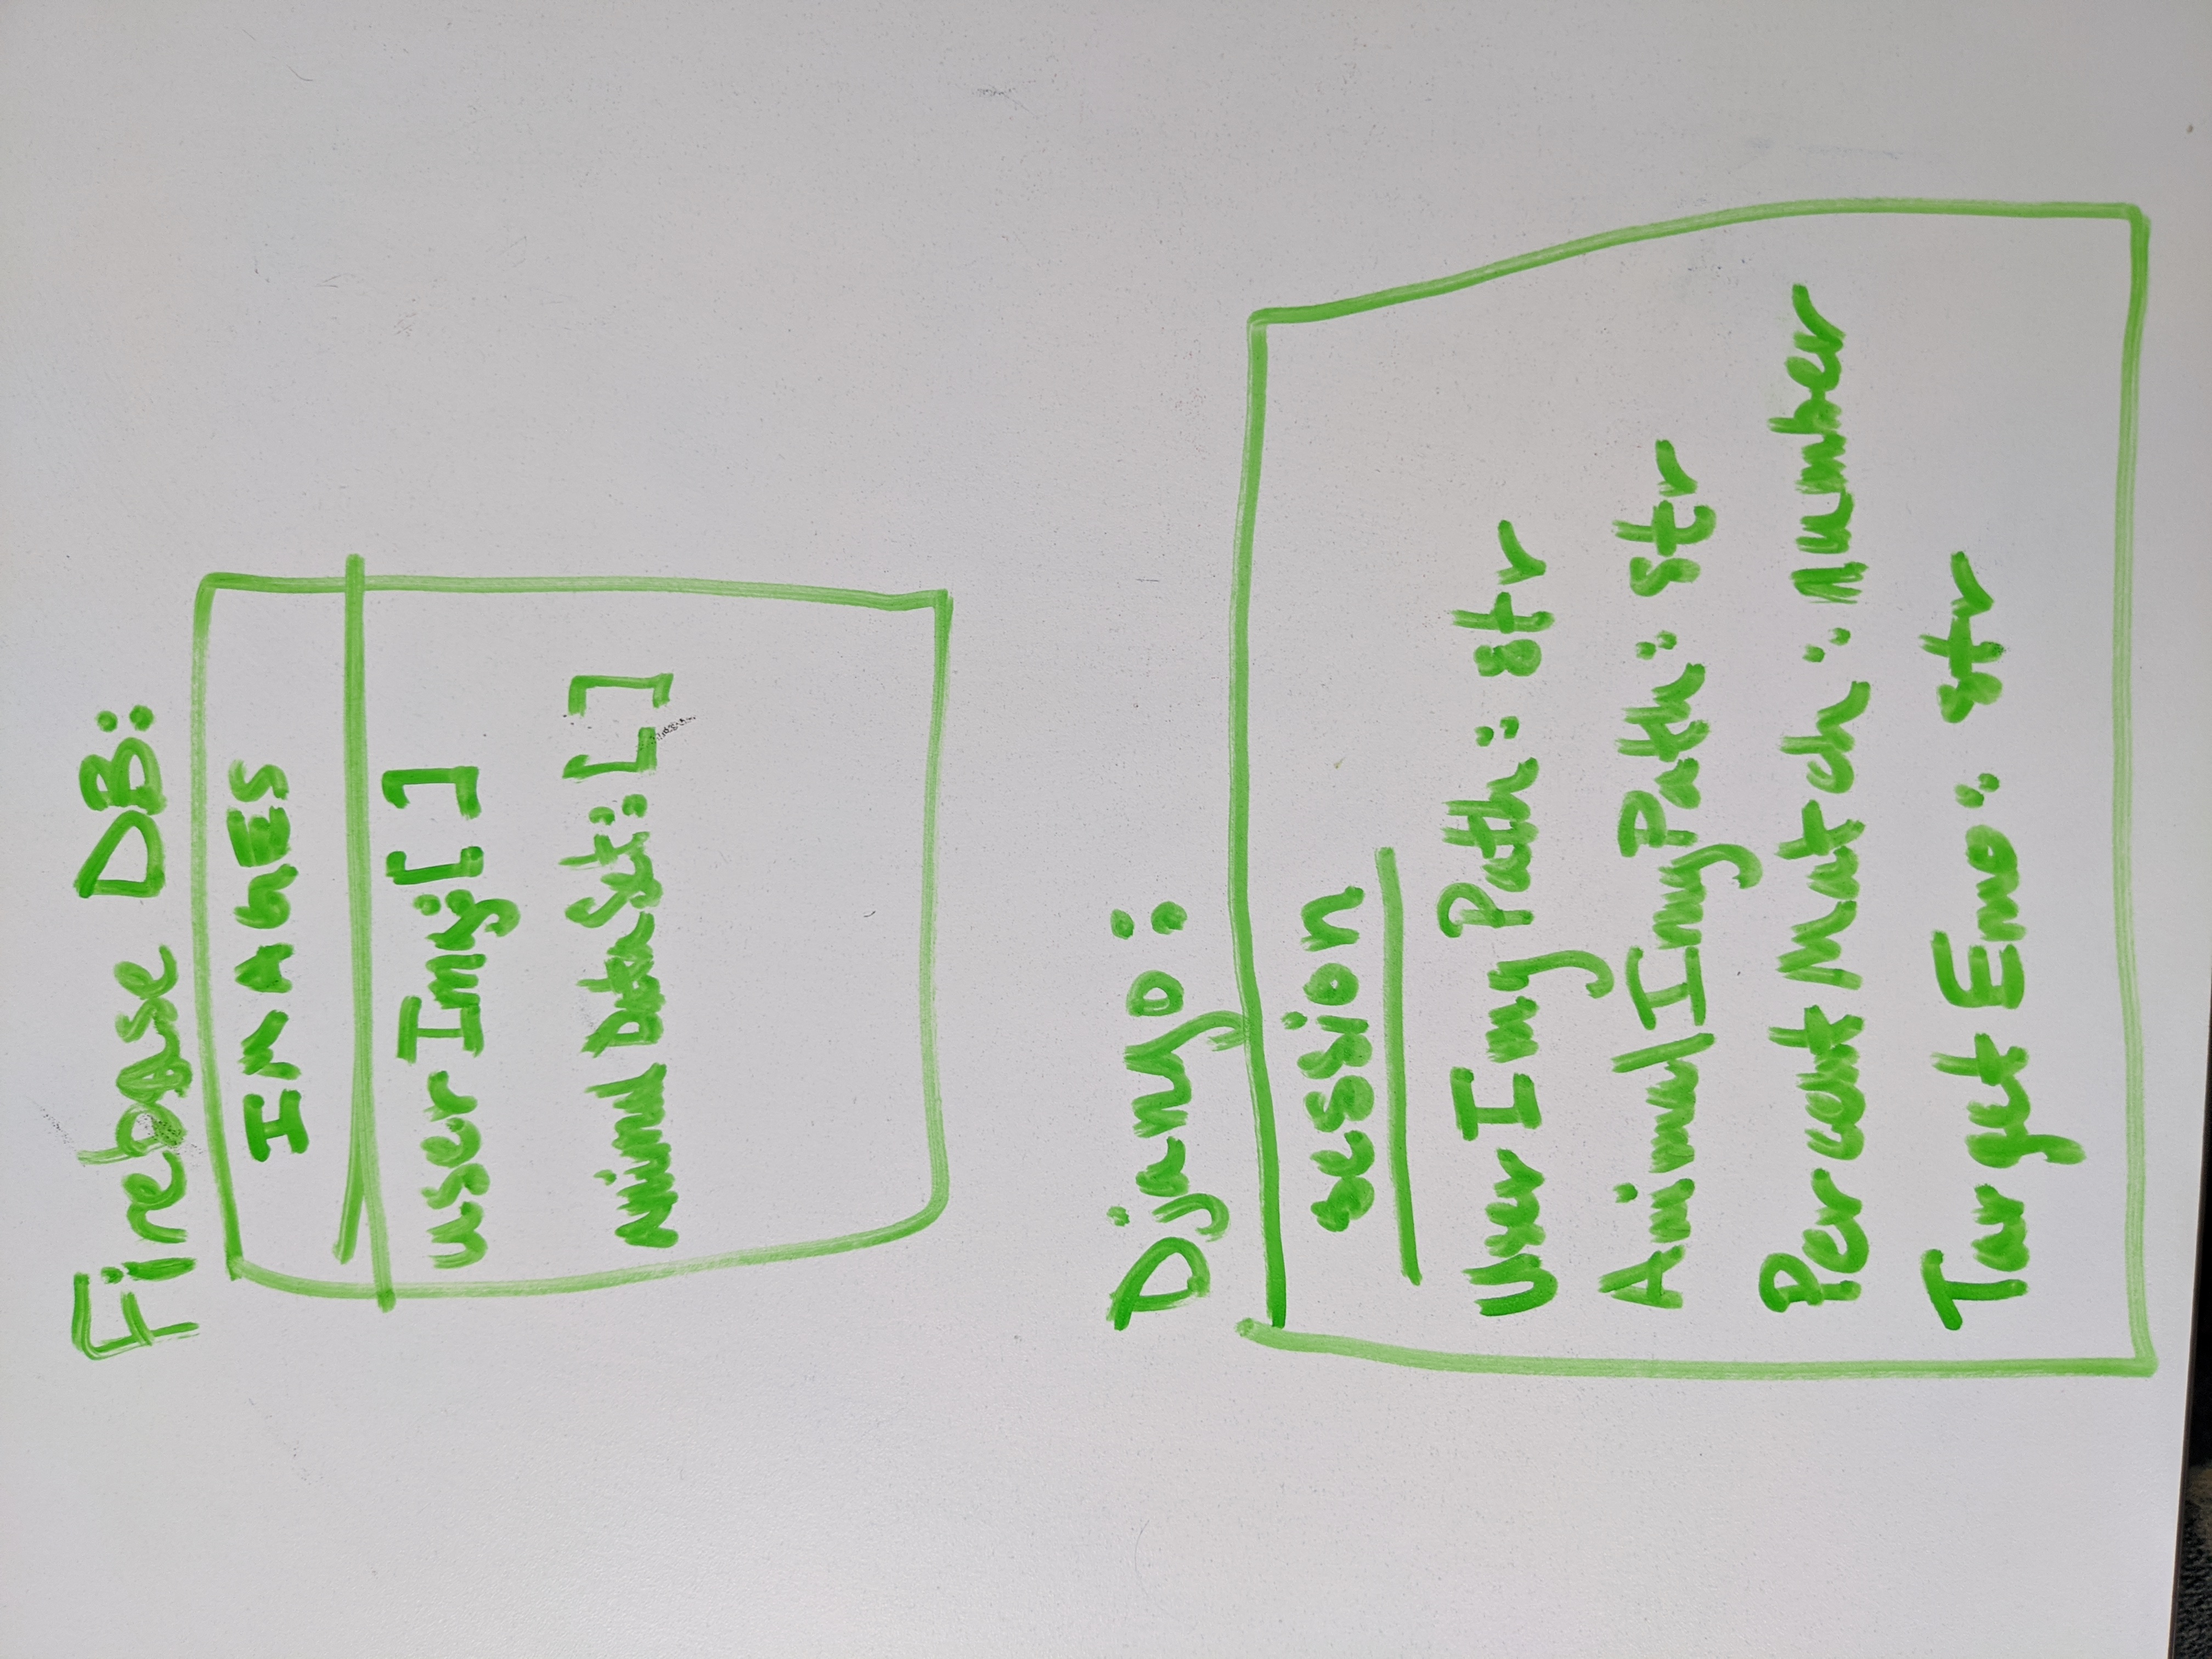 Firebase DB:
IMAGES
userImg:[ ]
animalDataSet:[ ]
Django:
session
UserImgPath: str
AnimalImgPath: str
PercentMatch: number
TargetEmo: str